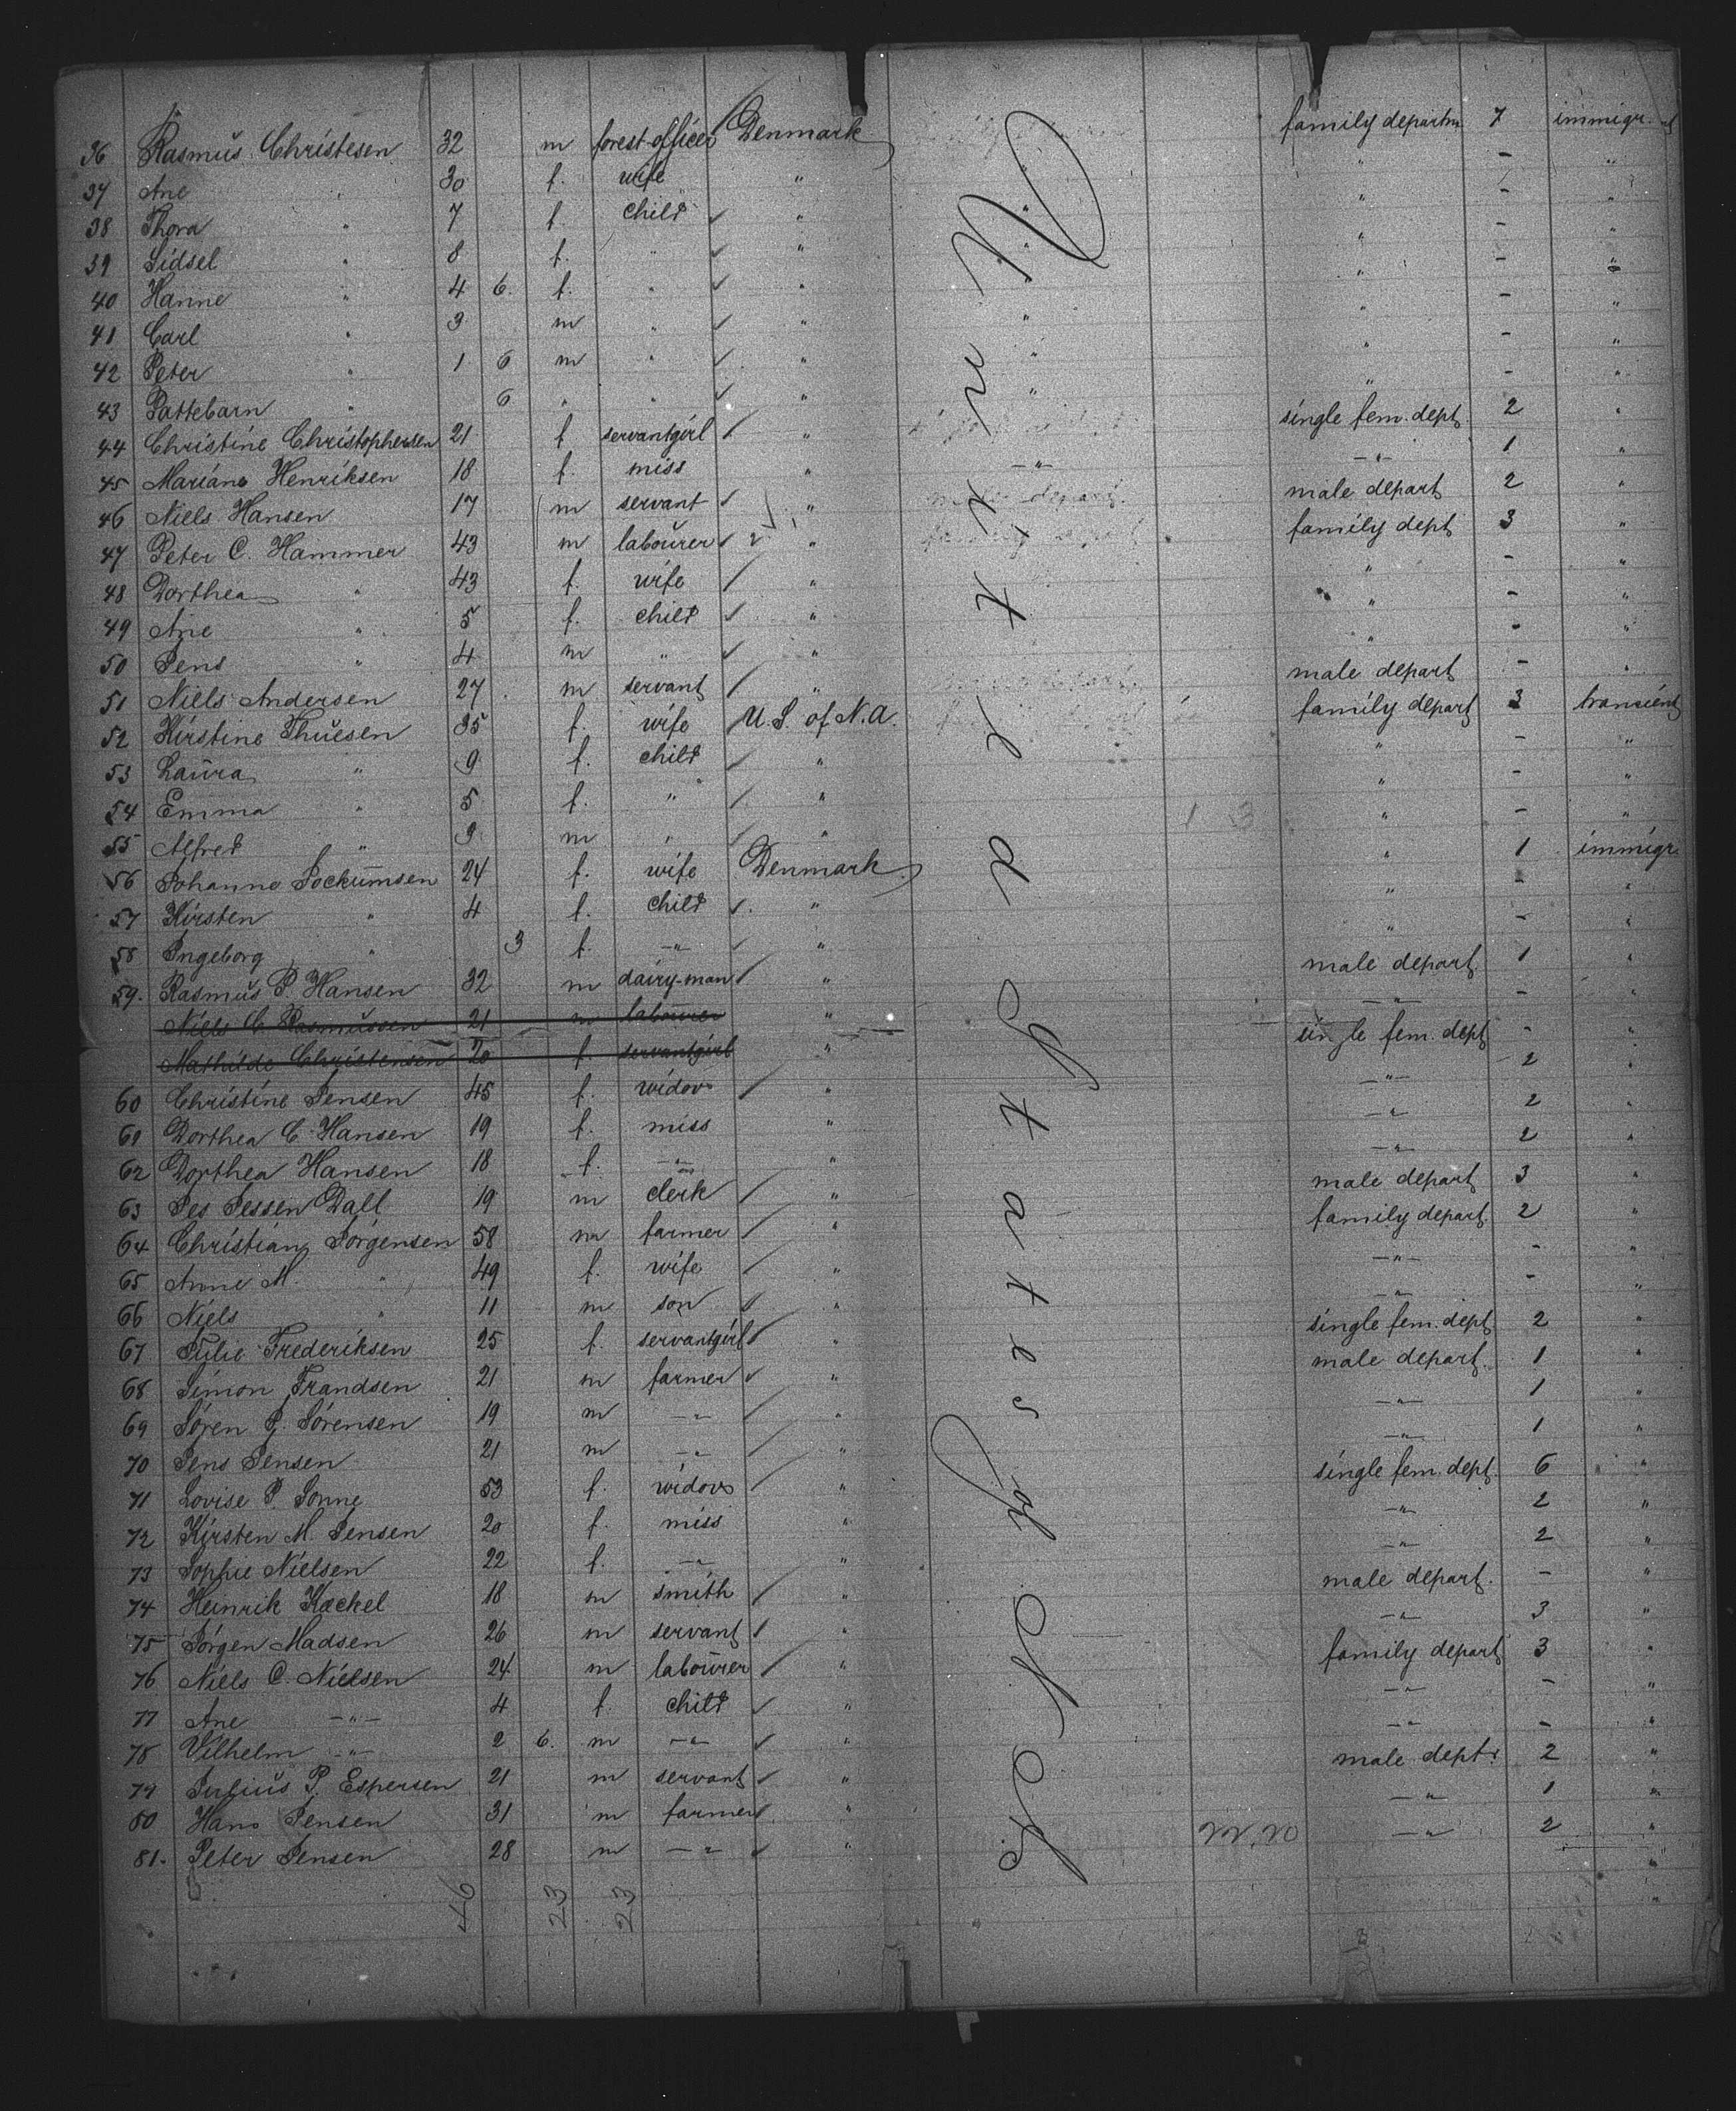 36 Rasmus Christesen 32 m forest-officer Denmark family departm 7 immigr.
37 Ane " 30 f. wife " " - "
38 Thora " 7 f. child " " - "
39 Sidsel " 8 f. " " " - "
40 Hanne " 4 6. f. " " " - "
41 Carl " 3 m " " " - "
42 Peter " 1 6 m " " " - "
43 Pattebarn " 6 " " " " - "
44 Christine Christophersen 21 f servantgirl " single fem. dept 2 "
45 Mariane Henriksen 18 f. miss " -"- 1 "
46 Niels Hansen 17 m servant " male depart 2 "
47 Peter C. Hammer 43 m labourer " family dept 3 "
48 Dorthea " 43 f. wife " " - "
49 Ane " 5 f. child " " - "
50 Jens " 4 m " " " - "
51 Niels Andersen 27 m servant " male depart - "
52 Kirstine Thuesen 35 f. wife U.S. of N.A. family depart 3 transient
53 Laura " 9 f. child " " - "
54 Emma " 5 f. " " " - "
55 Alfred " 3 m " " " - "
56 Johanne Jockumsen 24 f. wife Denmark " 1 immigr.
57 Kirsten " 4 f. child " " - "
58 Ingeborg " 3 f. -"- " " - "
59. Rasmus P. Hansen 32 m dairy-man " male depart 1 "
Niels C Rasmussen 21 m labourer " -"- - "
Mathilde Christensen 20 f. servantgirl " single fem. dept - "
60 Christine Jensen 45 f. widow " -"- 2 "
61 Dorthea C. Hansen 19 f. miss " -"- 2 "
62 Dorthea Hansen 18 f. -"- " -"- 2 "
63 Jes Jessen Dall 19 m clerk " male depart 3 "
64 Christian Jörgensen 58 m farmer " family depart 2 "
65 Anne M. " 49 f. wife " -"- - "
66 Niels " 11 m son " -"- - "
67 Julie Frederiksen 25 f. servantgirl " single fem. dept 2 "
68 Simon Frandsen 21 m farmer " male depart. 1 "
69 Sören P. Sörensen 19 m -"- " -"- 1 "
70 Jens Jensen 21 m -"- " -"- 1 "
71 Lovise P. Sonne 53 f. widow " single fem. dept. 6 "
72 Kirsten M. Jensen 20 f. miss " -"- 2 "
73 Sophie Nielsen 22 f. -"- " -"- 2 "
74 Heinrik Kaekel 18 m smith " male depart. - "
75 Jörgen Madsen 26 m servant " -"- 3 "
76 Niels C. Nielsen 24 m labourer " family depart 3 "
77 Ane -"- 4 f. child " -"- - "
78 Vilhelm -"- 2 6. m -"- " -"- - "
79 Julius P. Espersen 21 m servant " male dept. 2 "
80 Hans Jensen 31 m farmer " -"- 1 "
81. Peter Jensen 28 m -"- " -"- 2 "
United States of N. A.
1 3
22,20
46 23 23